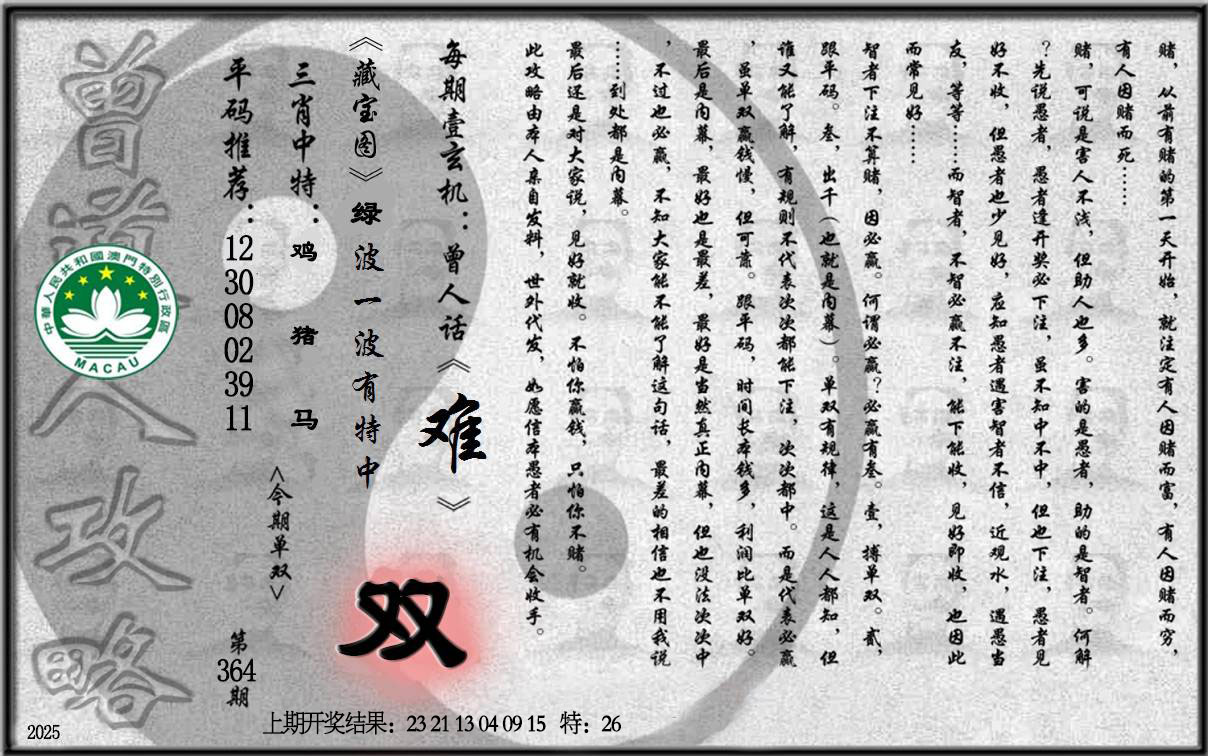 赌，从前有赌的第一天开始，就注定有人因赌而富，有人因赌而穷，
有人因赌而死……
赌，可说是害人不浅，但助人也多。害的是愚者，助的是智者。何解
？先说愚者，愚者逢开奖必下注，虽不知中不中，但也下注，愚者见
好不收，但愚者也少见好，应知愚者遇害智者不信，近观水，遇愚当
友，等等……而智者，不智必赢不注，能下能收，见好即收，也因此
而常见好……
智者下注不算赌，因必赢。何谓必赢？必赢有叁。壹，搏单双。贰，
跟平码。叁，出千（也就是内幕）。单双有规律，这是人人都知，但
谁又能了解，有规则不代表次次都能下注，次次都中。而是代表必赢
，虽单双赢钱慢，但可靠。跟平码，时间长本钱多，利润比单双好。
最后是内幕，最好也是最差，最好是当然真正内幕，但也没法次次中
，不过也必赢，不知大家能不能了解这句话，最差的相信也不用我说
……到处都是内幕。
最后还是对大家说，见好就收。不怕你赢钱，只怕你不赌。
此攻略由本人亲自发料，世外代发，如愿信本愚者必有机会收手。
每期壹玄机：曾人话《难》
《藏宝图》绿波一波有特中
双
三肖中特：鸡 猪 马
<今期单双>
平码推荐：12 30 08 02 39 11
第364期
曾道人攻略
中華人民共和國澳門特別行政區
MACAU
上期开奖结果：23 21 13 04 09 15 特：26
2025